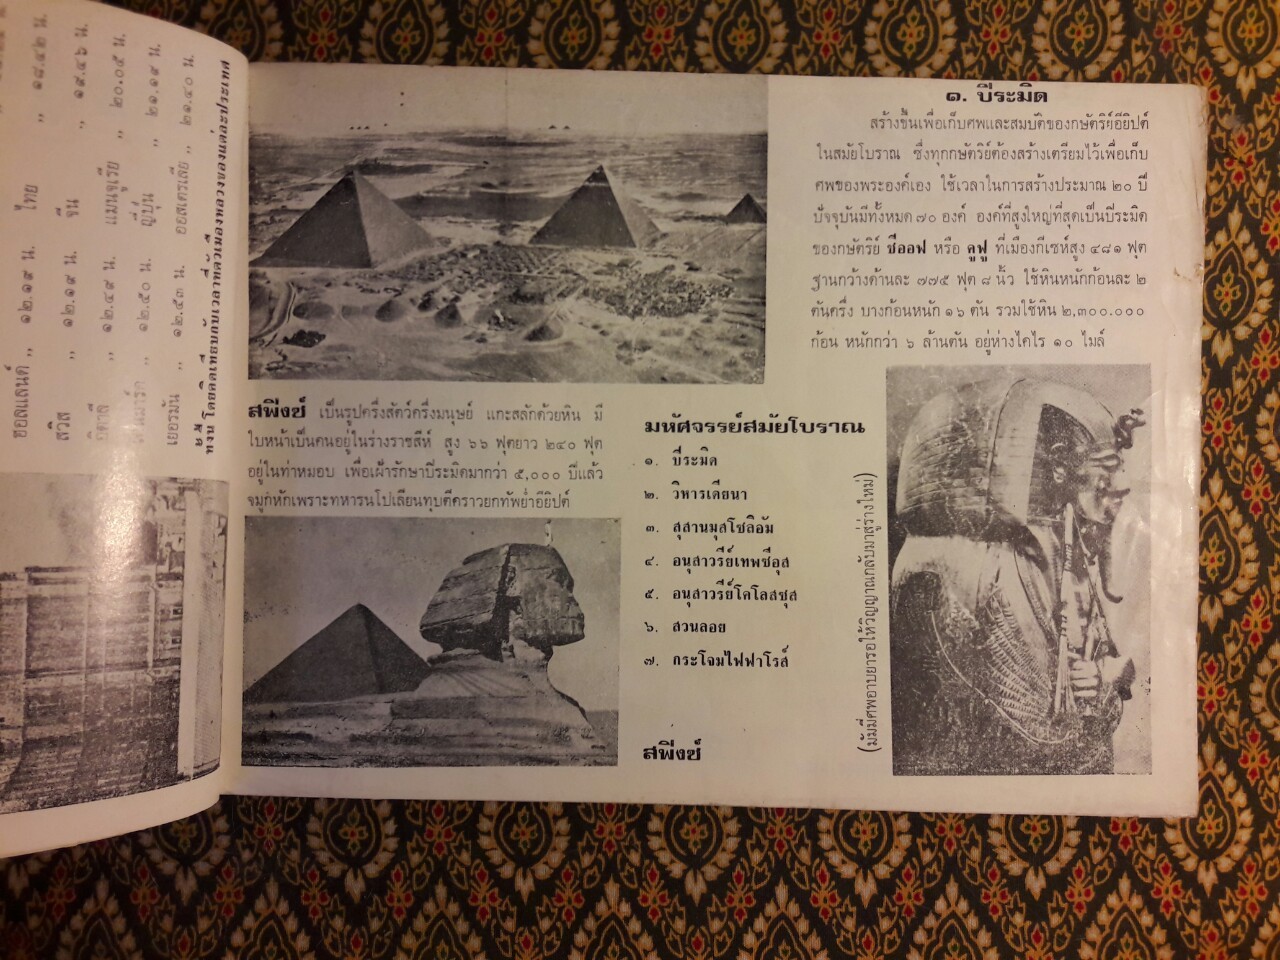 ๑. ปีระมิด
สร้างขึ้นเพื่อเก็บศพและสมบัติของกษัตริย์อียิปต์
ในสมัยโบราณ ซึ่งทุกกษัตริย์ต้องสร้างเตรียมไว้เพื่อเก็บ
ศพของพระองค์เอง ใช้เวลาในการสร้างประมาณ ๒๐ ปี
ปัจจุบันมีทั้งหมด ๗๐ องค์ องค์ที่สูงใหญ่ที่สุดเป็นปีระมิด
ของกษัตริย์ ชีออฟ หรือ คูฟู ที่เมืองกีเซห์สูง ๔๘๑ ฟุต
ฐานกว้างด้านละ ๗๗๕ ฟุต ๘ นิ้ว ใช้หินหนักก้อนละ ๒
ตันครึ่ง บางก้อนหนัก ๑๖ ตัน รวมใช้หิน ๒,๓๐๐.๐๐๐
ก้อน หนักกว่า ๖ ล้านตัน อยู่ห่างไคโร ๑๐ ไมล์
สฟิงซ์ เป็นรูปครึ่งสัตว์ครึ่งมนุษย์ แกะสลักด้วยหิน มี
ใบหน้าเป็นคนอยู่ในร่างราชสีห์ สูง ๖๖ ฟุตยาว ๒๔๐ ฟุต
อยู่ในท่าหมอบ เพื่อเฝ้ารักษาปีระมิดมากว่า ๕,๐๐๐ ปีแล้ว
จมูกหักเพราะทหารนโปเลียนทุบตีคราวยกทัพย่ำอียิปต์
มหัศจรรย์สมัยโบราณ
๑. ปีระมิด
๒. วิหารเดียนา
๓. สุสานมุสโซลิอัม
๔. อนุสาวรีย์เทพซีอุส
๕. อนุสาวรีย์โคโลสซุส
๖. สวนลอย
๗. กระโจมไฟฟาโรส์
สฟิงซ์
(มัมมี่ศพอาบยารอให้วิญญาณกลับมาสู่ร่างใหม่)
ฮอลแลนด์ " ๑๒.๑๙ น. ไทย " ๑๘.๔๒ น.
สวิส " ๑๒.๑๙ น. จีน " ๑๙.๔๖ น.
" ๑๒.๔๙ น. แมนจูเรีย " ๒๐.๐๕ น.
" ๑๒.๕๐ น. ญี่ปุ่น " ๒๑.๑๙ น.
เยอรมัน " ๑๒.๔๓ น. ออสเตรเลีย " ๒๑.๔๐ น.